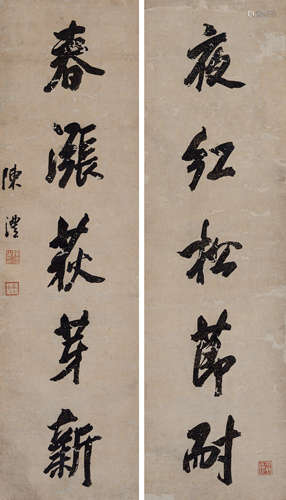 夜红松節耐
春漲荻芽新
陳澧